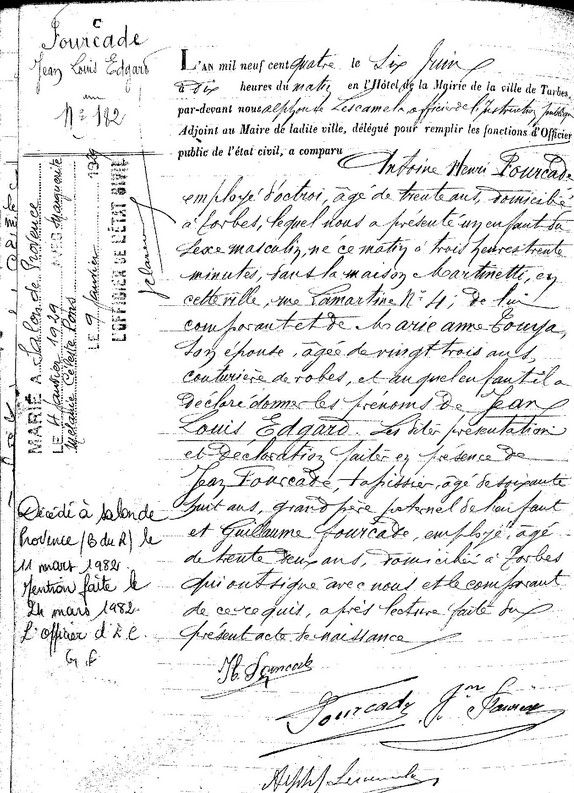 Fourcade
Jean Louis Edgard
N° 182
L'AN mil neuf cent quatre le Six Juin
à dix heures du matin en l'Hôtel de la Mairie de la ville de Tarbes,
par-devant nous Alphonse Lescamela officier de l'Instruction publique
Adjoint au Maire de ladite ville, délégué pour remplir les fonctions d'Officier
public de l'état civil, a comparu
Antoine Henri Fourcade
employé d'octroi, âgé de trente ans, domicilié
à Tarbes, lequel nous a présenté un enfant du
sexe masculin, né ce matin à trois heures trente
minutes, dans la maison Martinetti, en
cette ville, rue Lamartine N° 4; de lui
comparant et de Marie Anne Tourja,
son épouse, âgée de vingt trois ans,
couturière de robes, et auquel enfant il a
déclaré donner les prénoms de Jean
Louis Edgard. Les dites présentation
et déclaration faites en présence de
Jean Fourcade, tapissier, âgé de soixante
huit ans, grand père paternel de l'enfant
et Guillaume Fourcade, employé, âgé
de trente deux ans, domiciliés à Tarbes
qui ont signé avec nous et le comparant
de ce requis, après lecture faite du
présent acte de naissance
H. Fourcade
Fourcade Jn Fourcade
MARIÉ A Salon de Provence
LE 4 Janvier 1929 AVEC Marguerite
Mélanie Céleste Pons
LE 9 Janvier 1929
L'OFFICIER DE L'ÉTAT CIVIL
Décédé à Salon de
Provence (B du R) le
11 mars 1982.
Mention faite le
24 mars 1982.
L'Officier d'E.C.